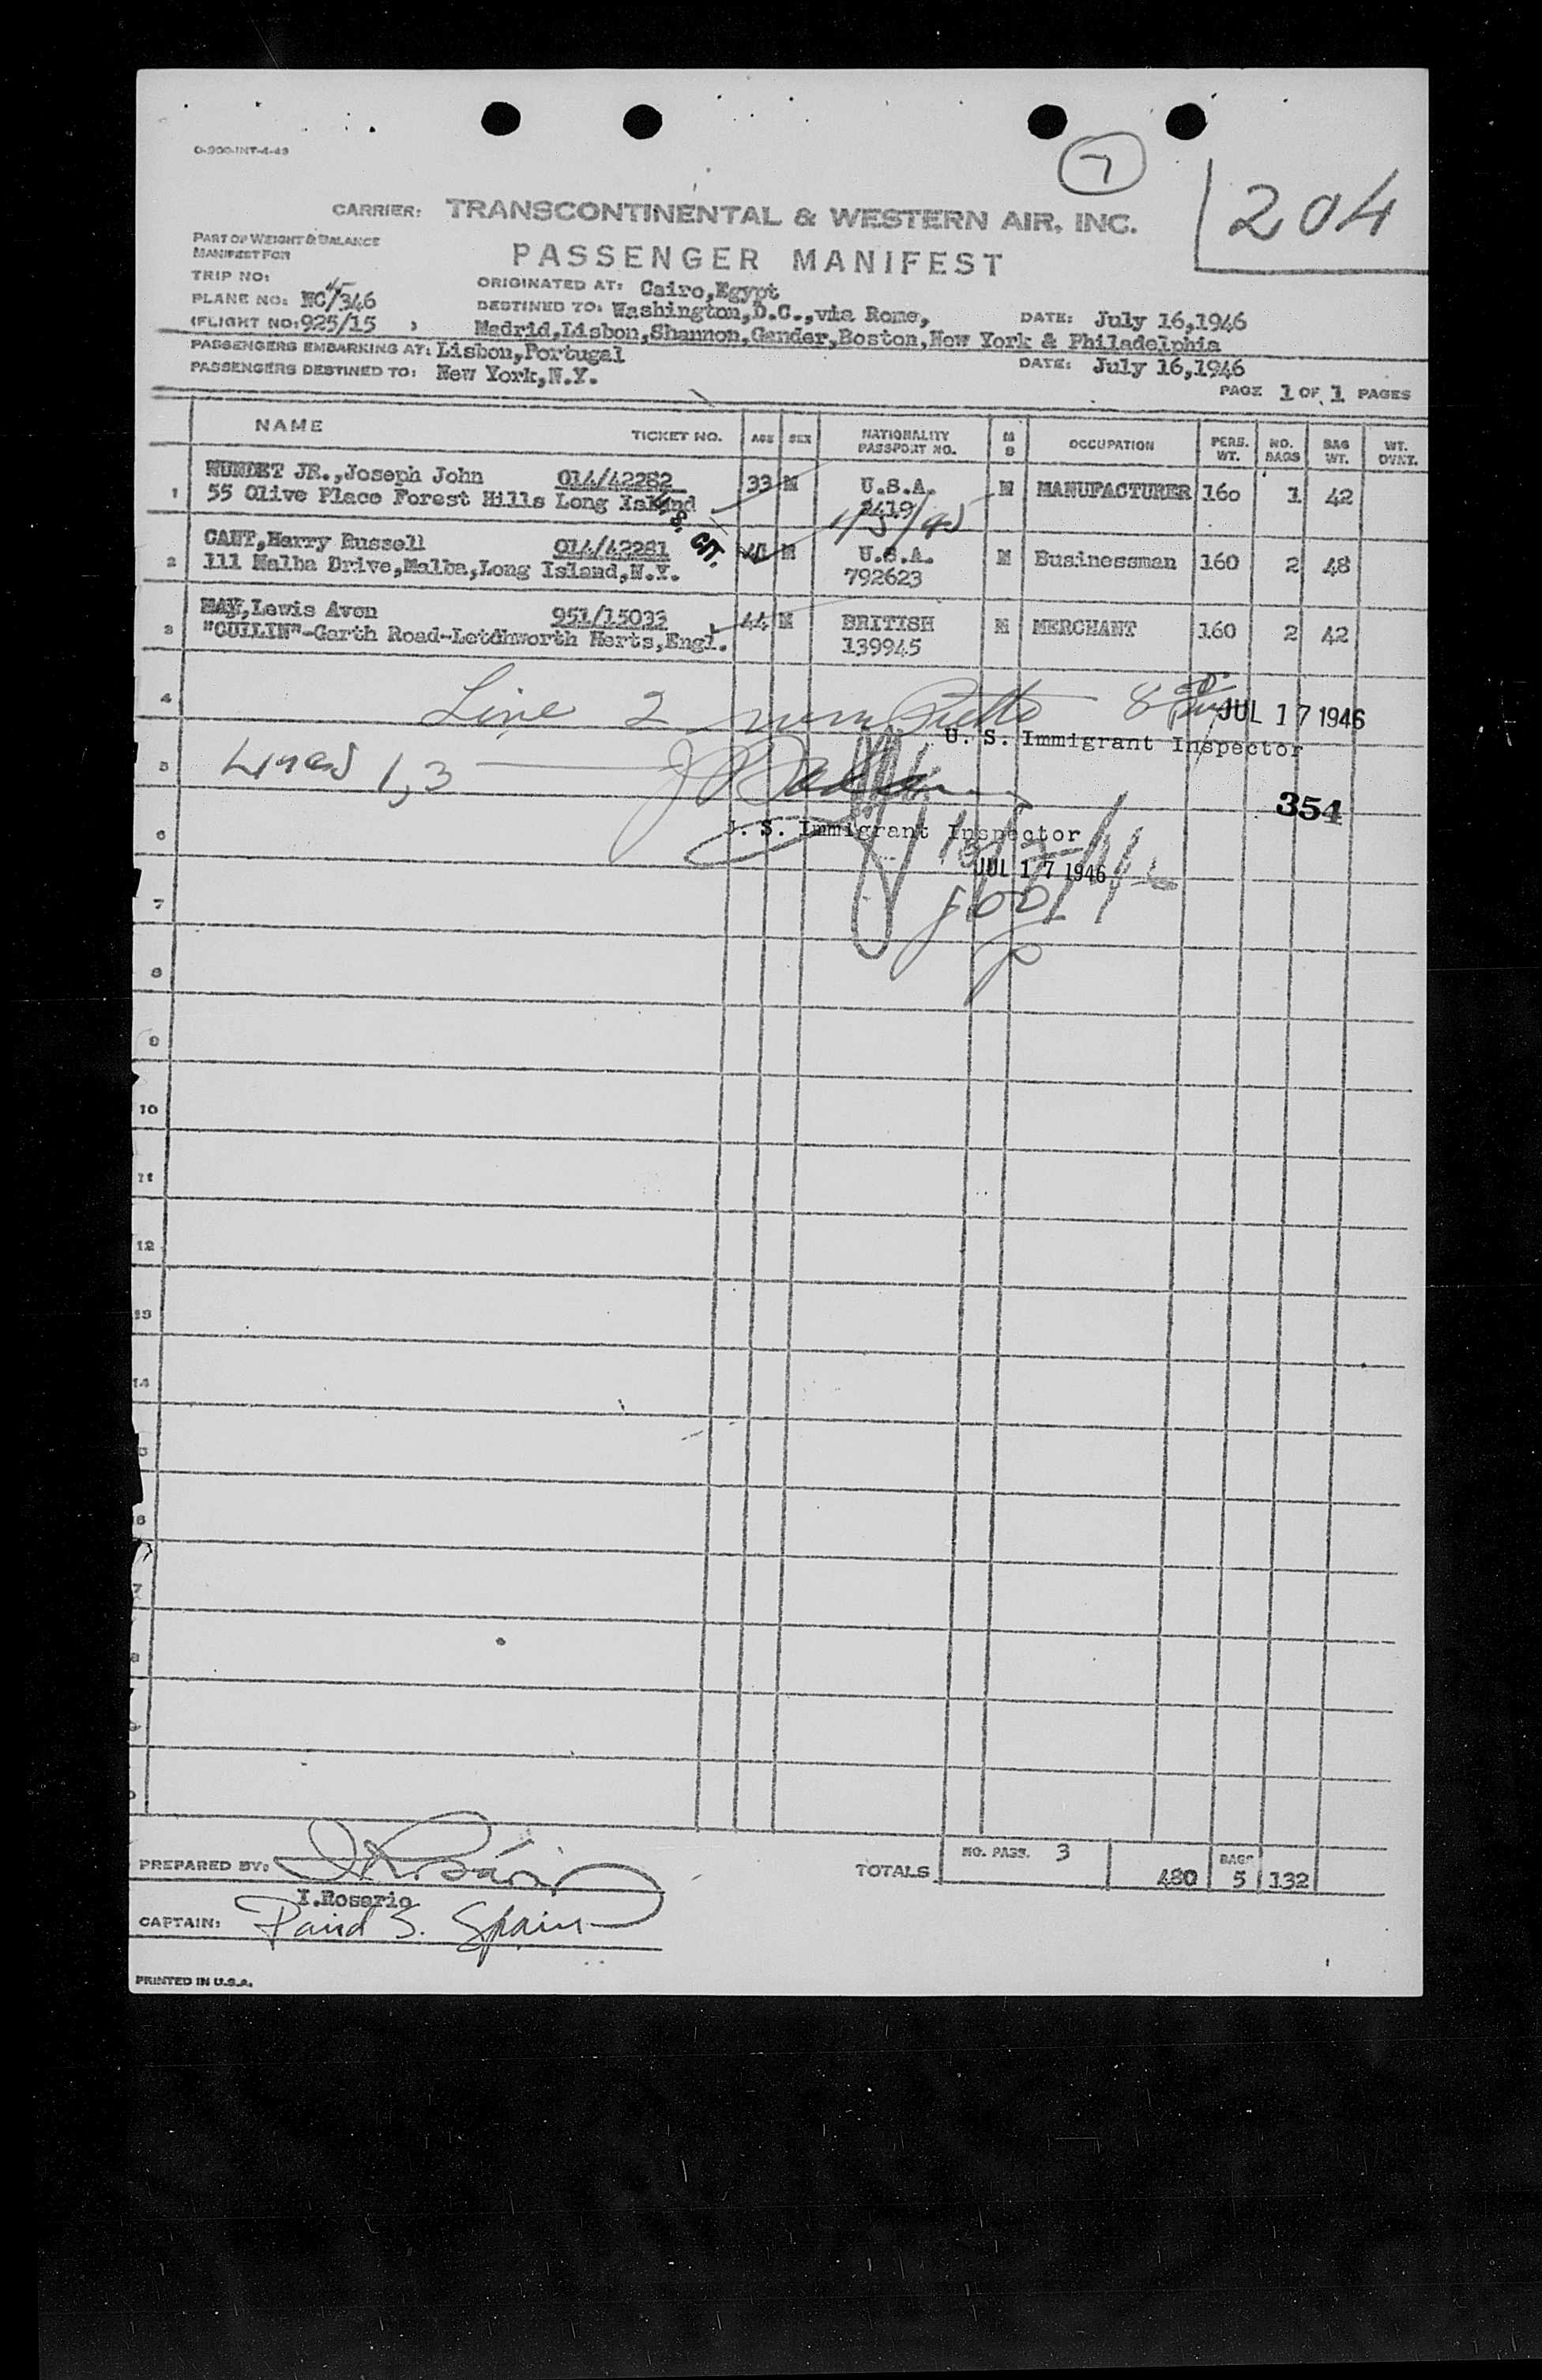 O-900-INT-4-43
7
204
CARRIER: TRANSCONTINENTAL & WESTERN AIR, INC.
PART OF WEIGHT & BALANCE
MANIFEST FOR
PASSENGER MANIFEST
TRIP NO:
ORIGINATED AT: Cairo,Egypt
PLANE NO: NC/346
DESTINED TO: Washington,D.C.,via Rome, DATE: July 16,1946
(FLIGHT NO: 925/15 ) Madrid,Lisbon,Shannon,Gander,Boston,New York & Philadelphia
PASSENGERS EMBARKING AT: Lisbon,Portugal DATE: July 16,1946
PASSENGERS DESTINED TO: New York,N.Y.
PAGE 1 OF 1 PAGES
NAME TICKET NO. AGE SEX NATIONALITY PASSPORT NO. M S OCCUPATION PERS. WT. NO. BAGS BAG WT. WT. OVNT.
MUNDET JR.,Joseph John 014/42282 33 M U.S.A. M MANUFACTURER 160 1 42
1 55 Olive Place Forest Hills Long Island 2419
U.S. CIT.
CANT,Harry Russell 014/42281 M U.S.A. M Businessman 160 2 48
2 111 Malba Drive,Malba,Long Island,N.Y. 792623
MAY,Lewis Avon 951/15033 44 M BRITISH M MERCHANT 160 2 42
3 "CUILIN"-Garth Road-Letchworth Herts,Engl. 139945
4 Line 2 JUL 17 1946
U. S. Immigrant Inspector
5 Lines 1,3
354
6 U. S. Immigrant Inspector
JUL 17 1946
7
8
9
10
11
12
13
14
5
6
7
8
9
PREPARED BY:
I.Rosario
TOTALS NO. PASS. 3 480 BAGS 5 132
CAPTAIN: David S. Spain
PRINTED IN U.S.A.